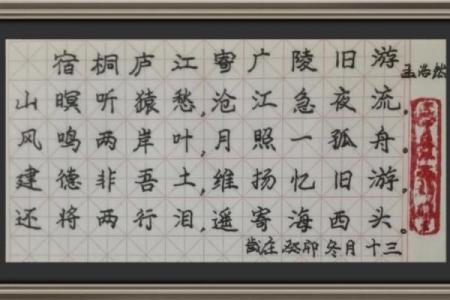 宿桐庐江寄广陵旧游
孟浩然
山暝听猿愁,沧江急夜流,
风鸣两岸叶,月照一孤舟。
建德非吾土,维扬忆旧游,
还将两行泪,遥寄海西头。
歲在癸卯冬月十三